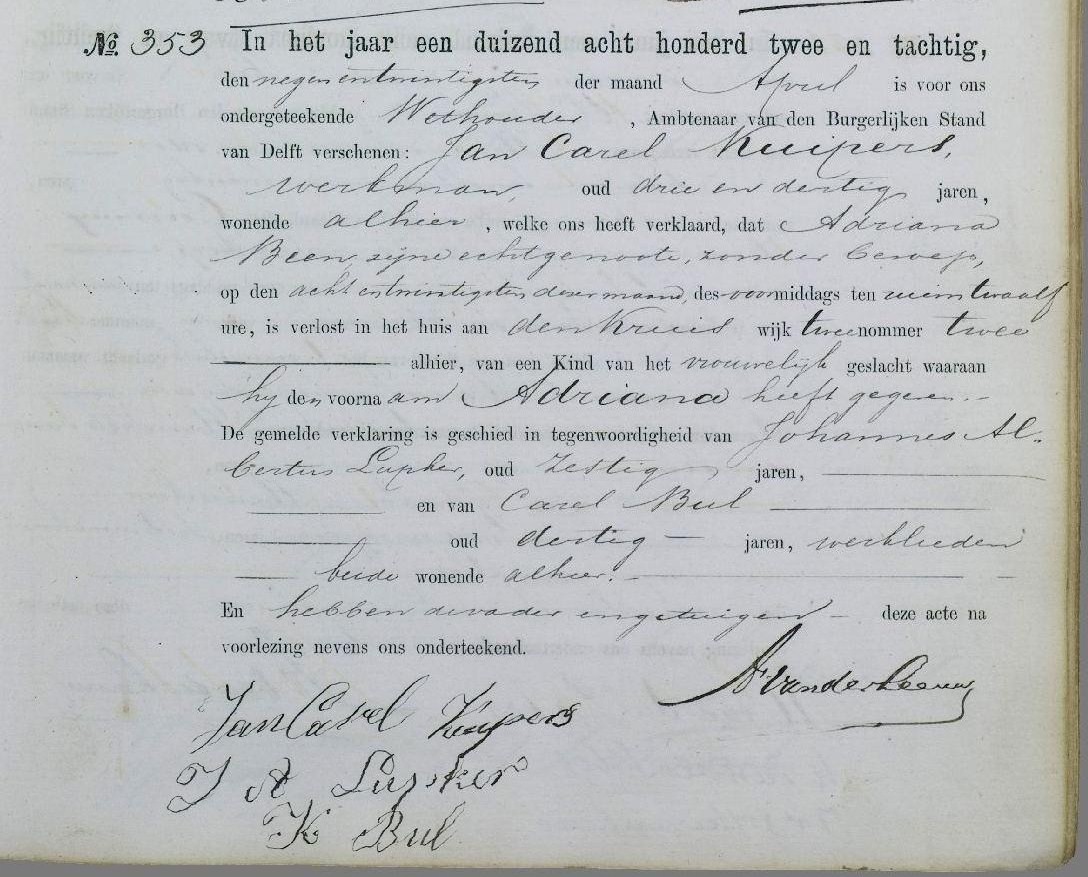 No 353 In het jaar een duizend acht honderd twee en tachtig,
den negen en twintigsten der maand April is voor ons
ondergeteekende Wethouder, Ambtenaar van den Burgerlijken Stand
van Delft verschenen: Jan Carel Kuipers,
werkman, oud drie en dertig jaren,
wonende alhier, welke ons heeft verklaard, dat Adriana
Been, zijne echtgenoote, zonder beroep,
op den acht en twintigsten dezer maand, des voormiddags ten twaalf
ure, is verlost in het huis aan den Kruis wijk twee nommer twee
alhier, van een Kind van het vrouwelijk geslacht waaraan
hij den voornaam Adriana heeft gegeven.
De gemelde verklaring is geschied in tegenwoordigheid van Johannes Al-
bertus Lupker, oud zestig jaren,
en van Carel Bul
oud dertig jaren, werklieden
beide wonende alhier.
En hebben de vader en getuigen deze acte na
voorlezing nevens ons onderteekend.
van der Leeuw
Jan Carel Kuypers
J A Lupker
K Bul